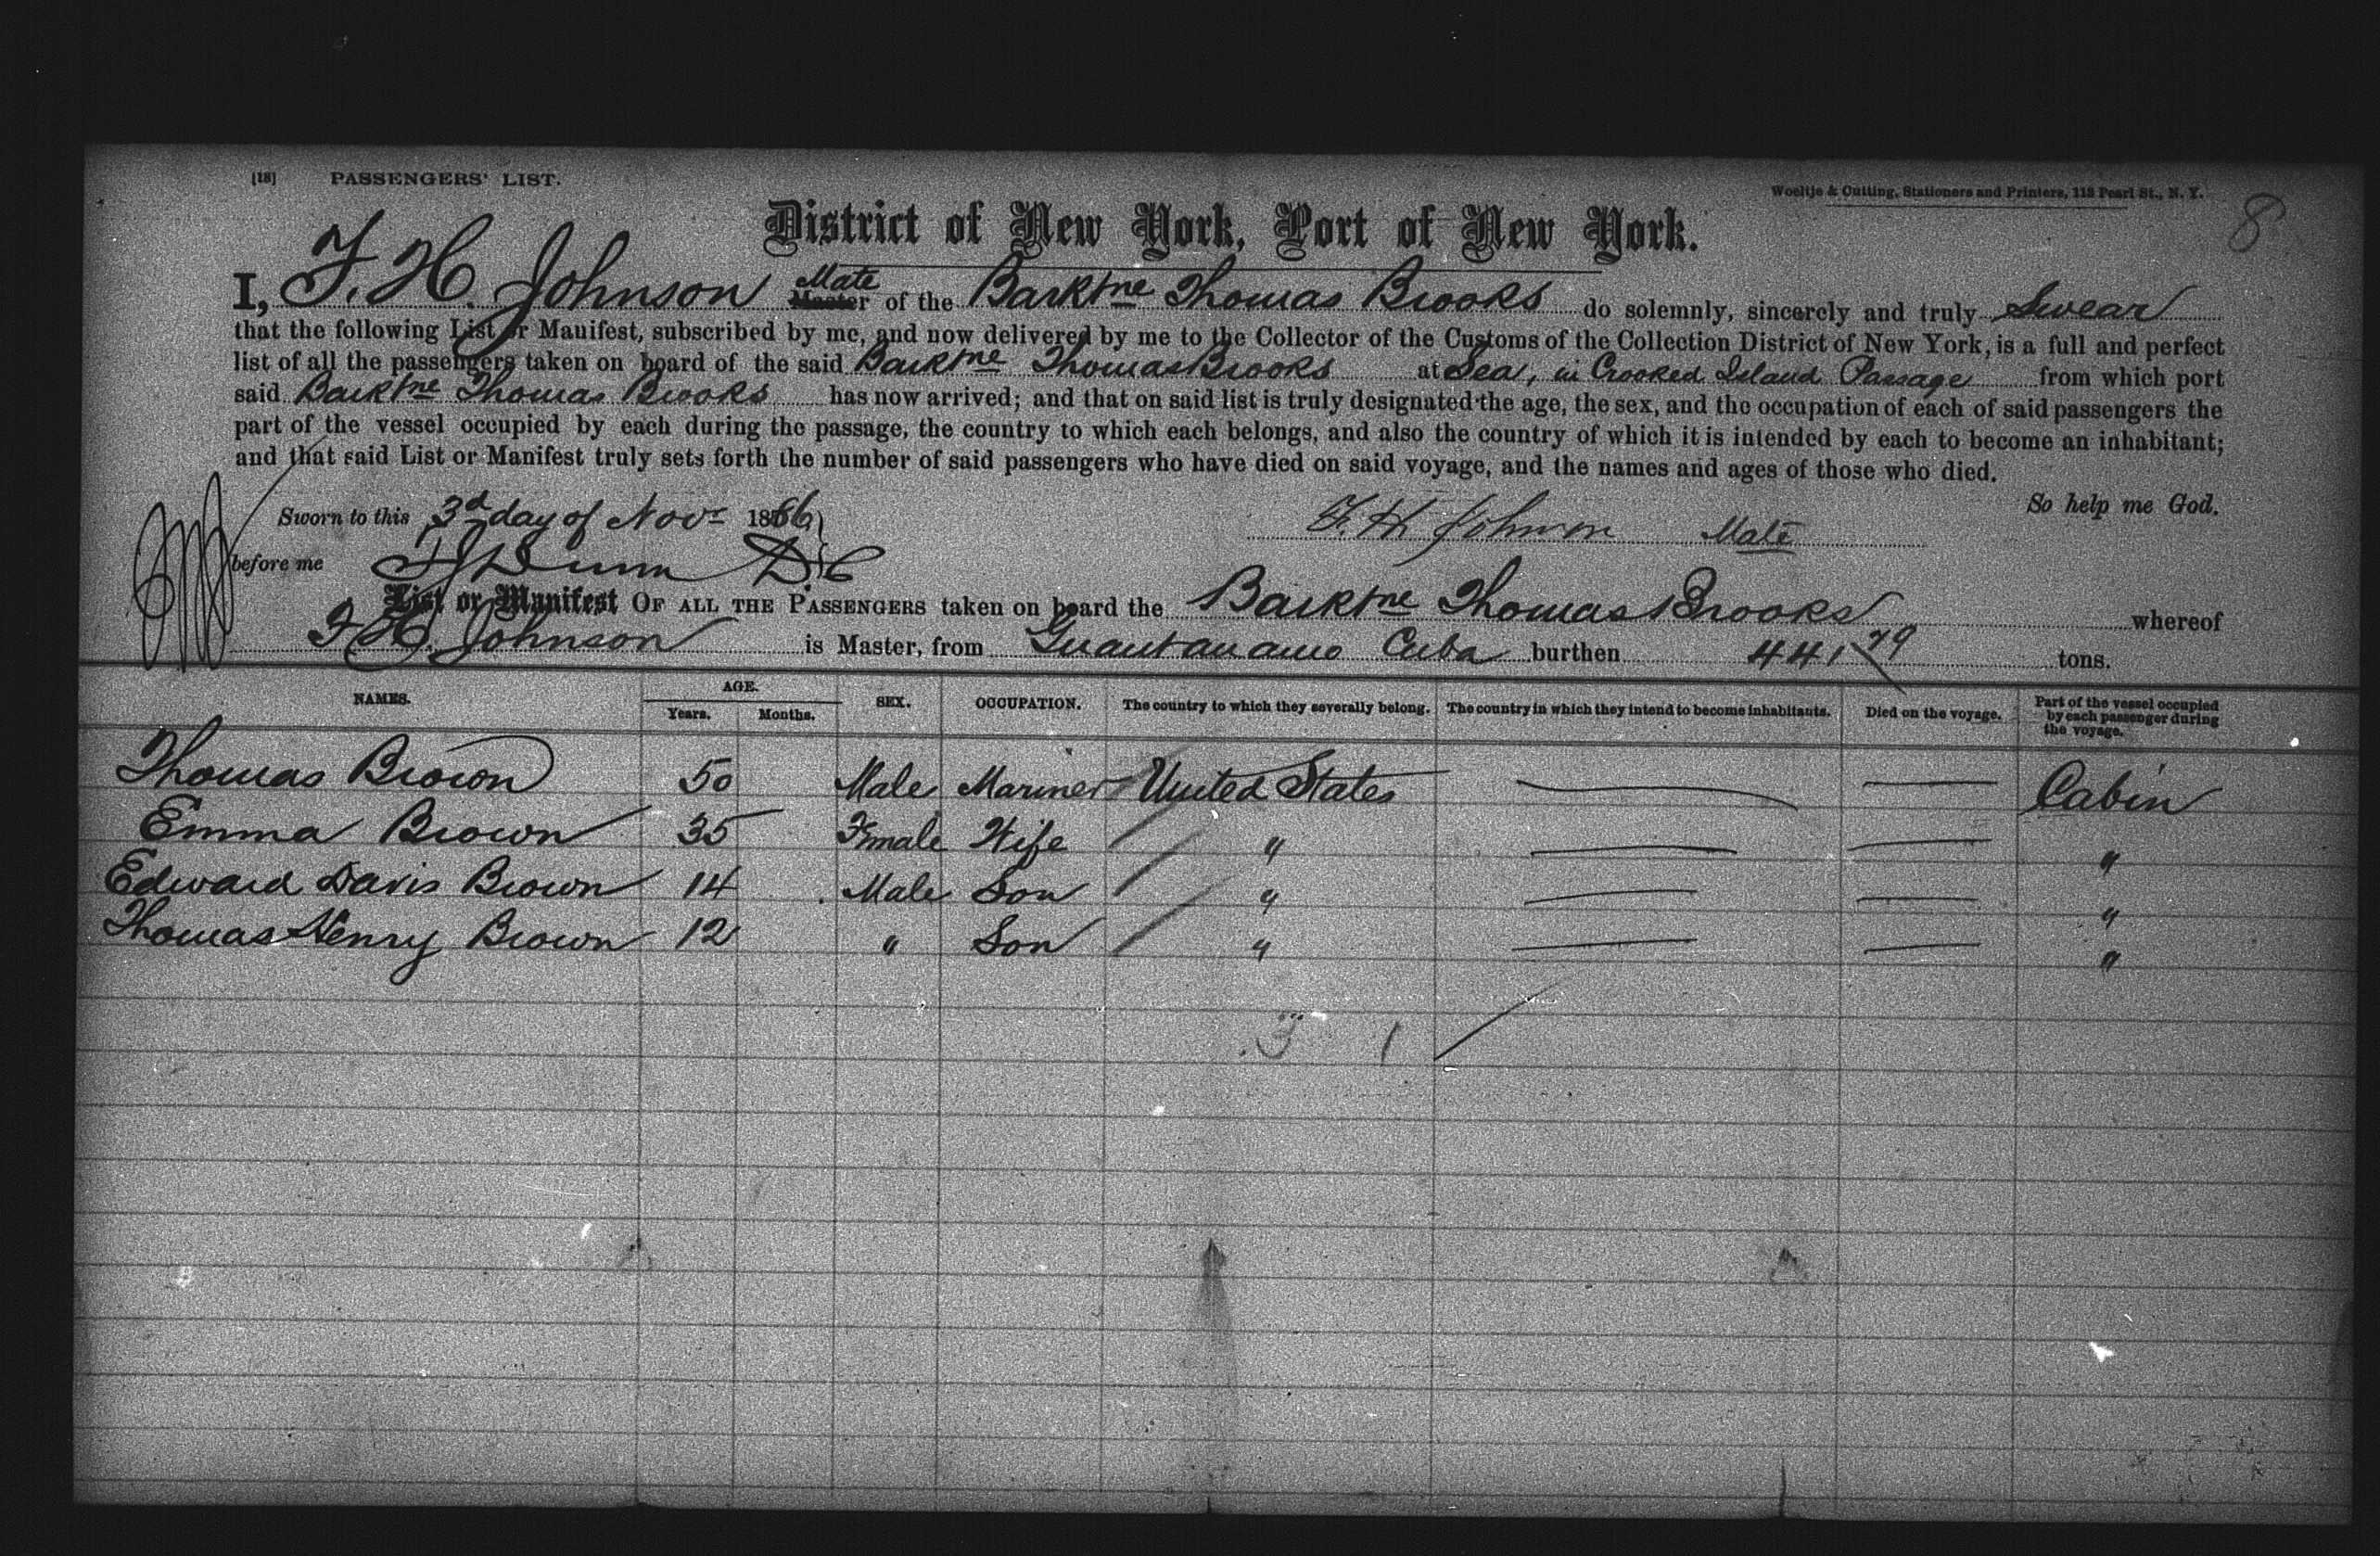 [18] PASSENGERS' LIST.
Woeltje & Cutting, Stationers and Printers, 113 Pearl St., N. Y.
8
District of New York, Port of New York.
I, F. H. Johnson Mate Master of the Barktne Thomas Brooks do solemnly, sincerely and truly Swear
that the following List or Manifest, subscribed by me, and now delivered by me to the Collector of the Customs of the Collection District of New York, is a full and perfect
list of all the passengers taken on board of the said Barktne Thomas Brooks at Sea, in Crooked Island Passage from which port
said Barktne Thomas Brooks has now arrived; and that on said list is truly designated the age, the sex, and the occupation of each of said passengers the
part of the vessel occupied by each during the passage, the country to which each belongs, and also the country of which it is intended by each to become an inhabitant;
and that said List or Manifest truly sets forth the number of said passengers who have died on said voyage, and the names and ages of those who died.
So help me God.
Sworn to this 3d day of Novr 1886
F. H. Johnson Mate
before me Dunn D C
List or Manifest OF ALL THE PASSENGERS taken on board the Barktne Thomas Brooks whereof
F. H. Johnson is Master, from Guantanamo Cuba burthen 441 79 tons.
NAMES. AGE. Years. Months. SEX. OCCUPATION. The country to which they severally belong. The country in which they intend to become inhabitants. Died on the voyage. Part of the vessel occupied by each passenger during the voyage.
Thomas Brown 50 Male Mariner United States — — Cabin
Emma Brown 35 Female Wife " — — "
Edward Davis Brown 14 Male Son " — — "
Thomas Henry Brown 12 " Son " — — "
3 1